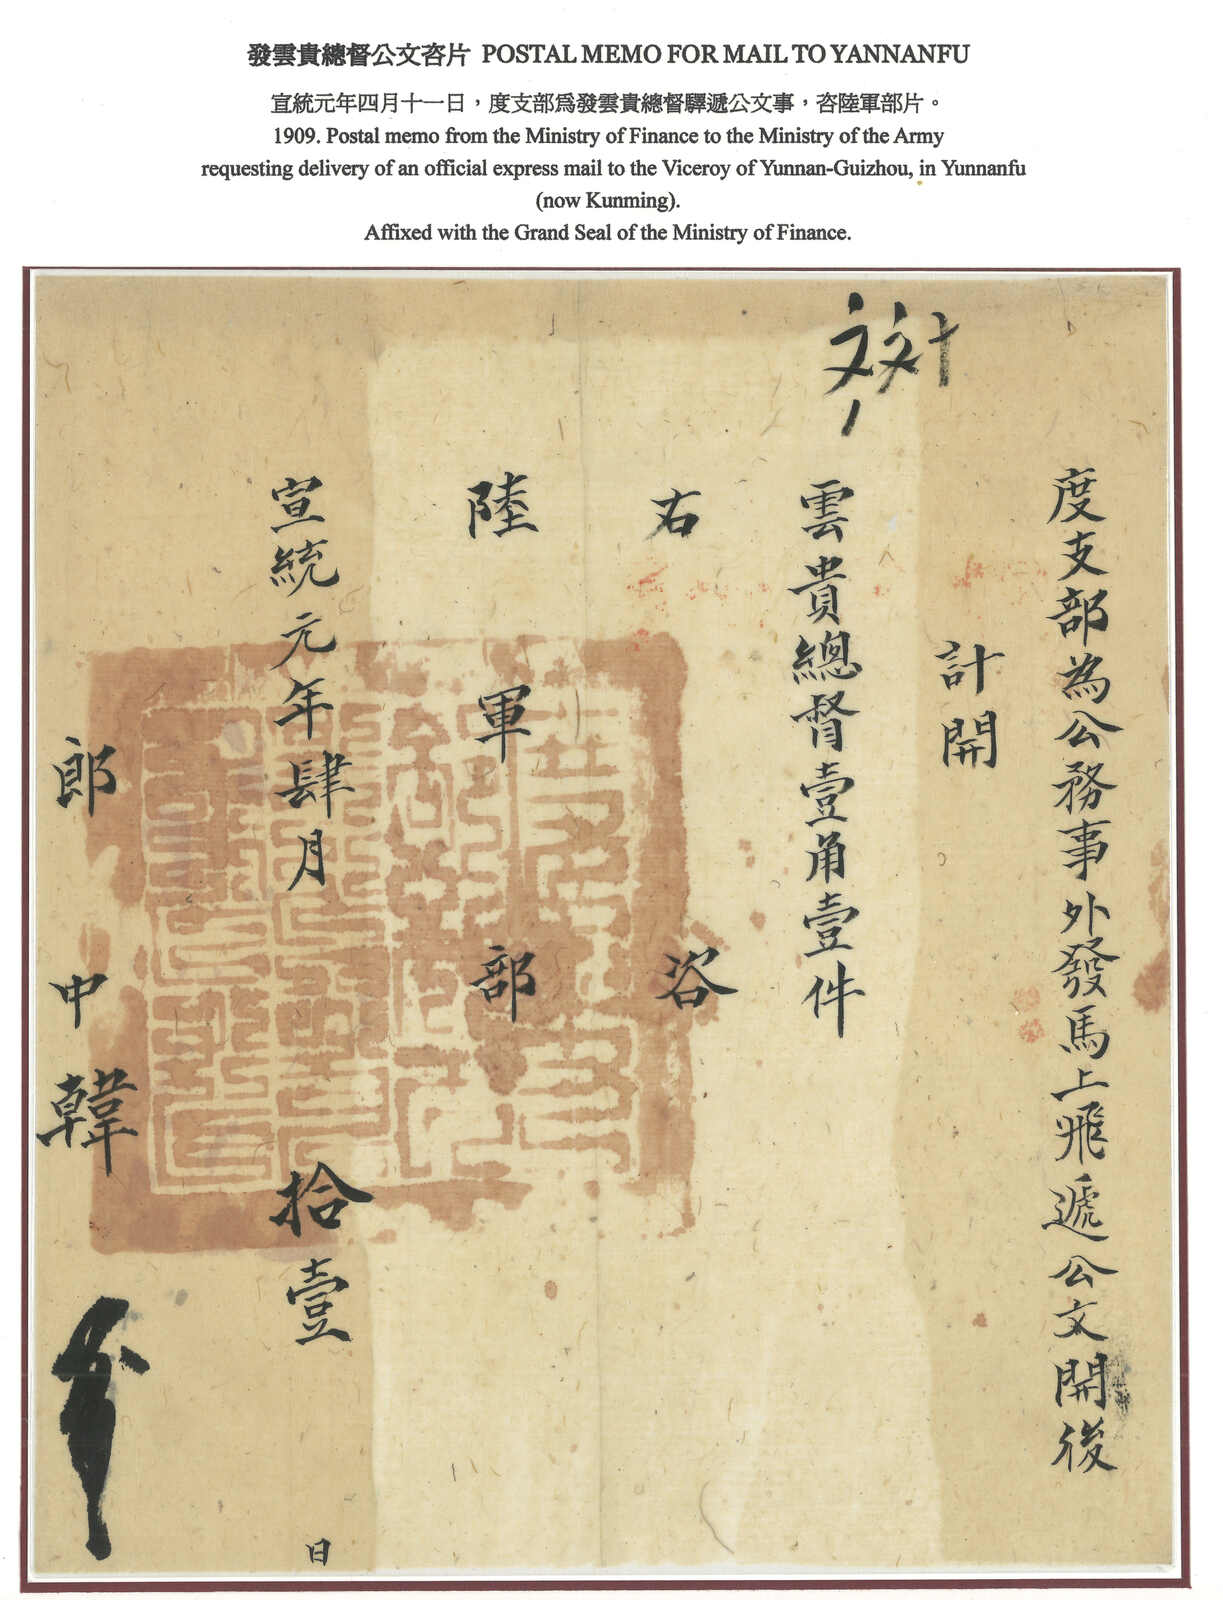 發雲貴總督公文咨片 POSTAL MEMO FOR MAIL TO YANNANFU
宣統元年四月十一日，度支部爲發雲貴總督驛遞公文事，咨陸軍部片。
1909. Postal memo from the Ministry of Finance to the Ministry of the Army
requesting delivery of an official express mail to the Viceroy of Yunnan-Guizhou, in Yunnanfu
(now Kunming).
Affixed with the Grand Seal of the Ministry of Finance.
度支部為公務事外發馬上飛遞公文開後
計開
雲貴總督壹角壹件
右咨
陸軍部
宣統元年肆月拾壹日
郎中韓